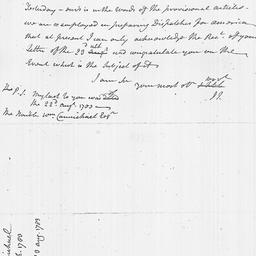 Yesterday – and is in the words of the provisional articles.
we are employed in preparing Dispatches for America
that at present I can only acknowledge the Rec.t of your
Letter of the 23d and congratulate you on the
Event which is the subject of it
I am Sir
your most ob.t
J.J.
The P.S. my last to you was
the 22d Augt. 1783
The Honble Wm. Carmichael Esqr.